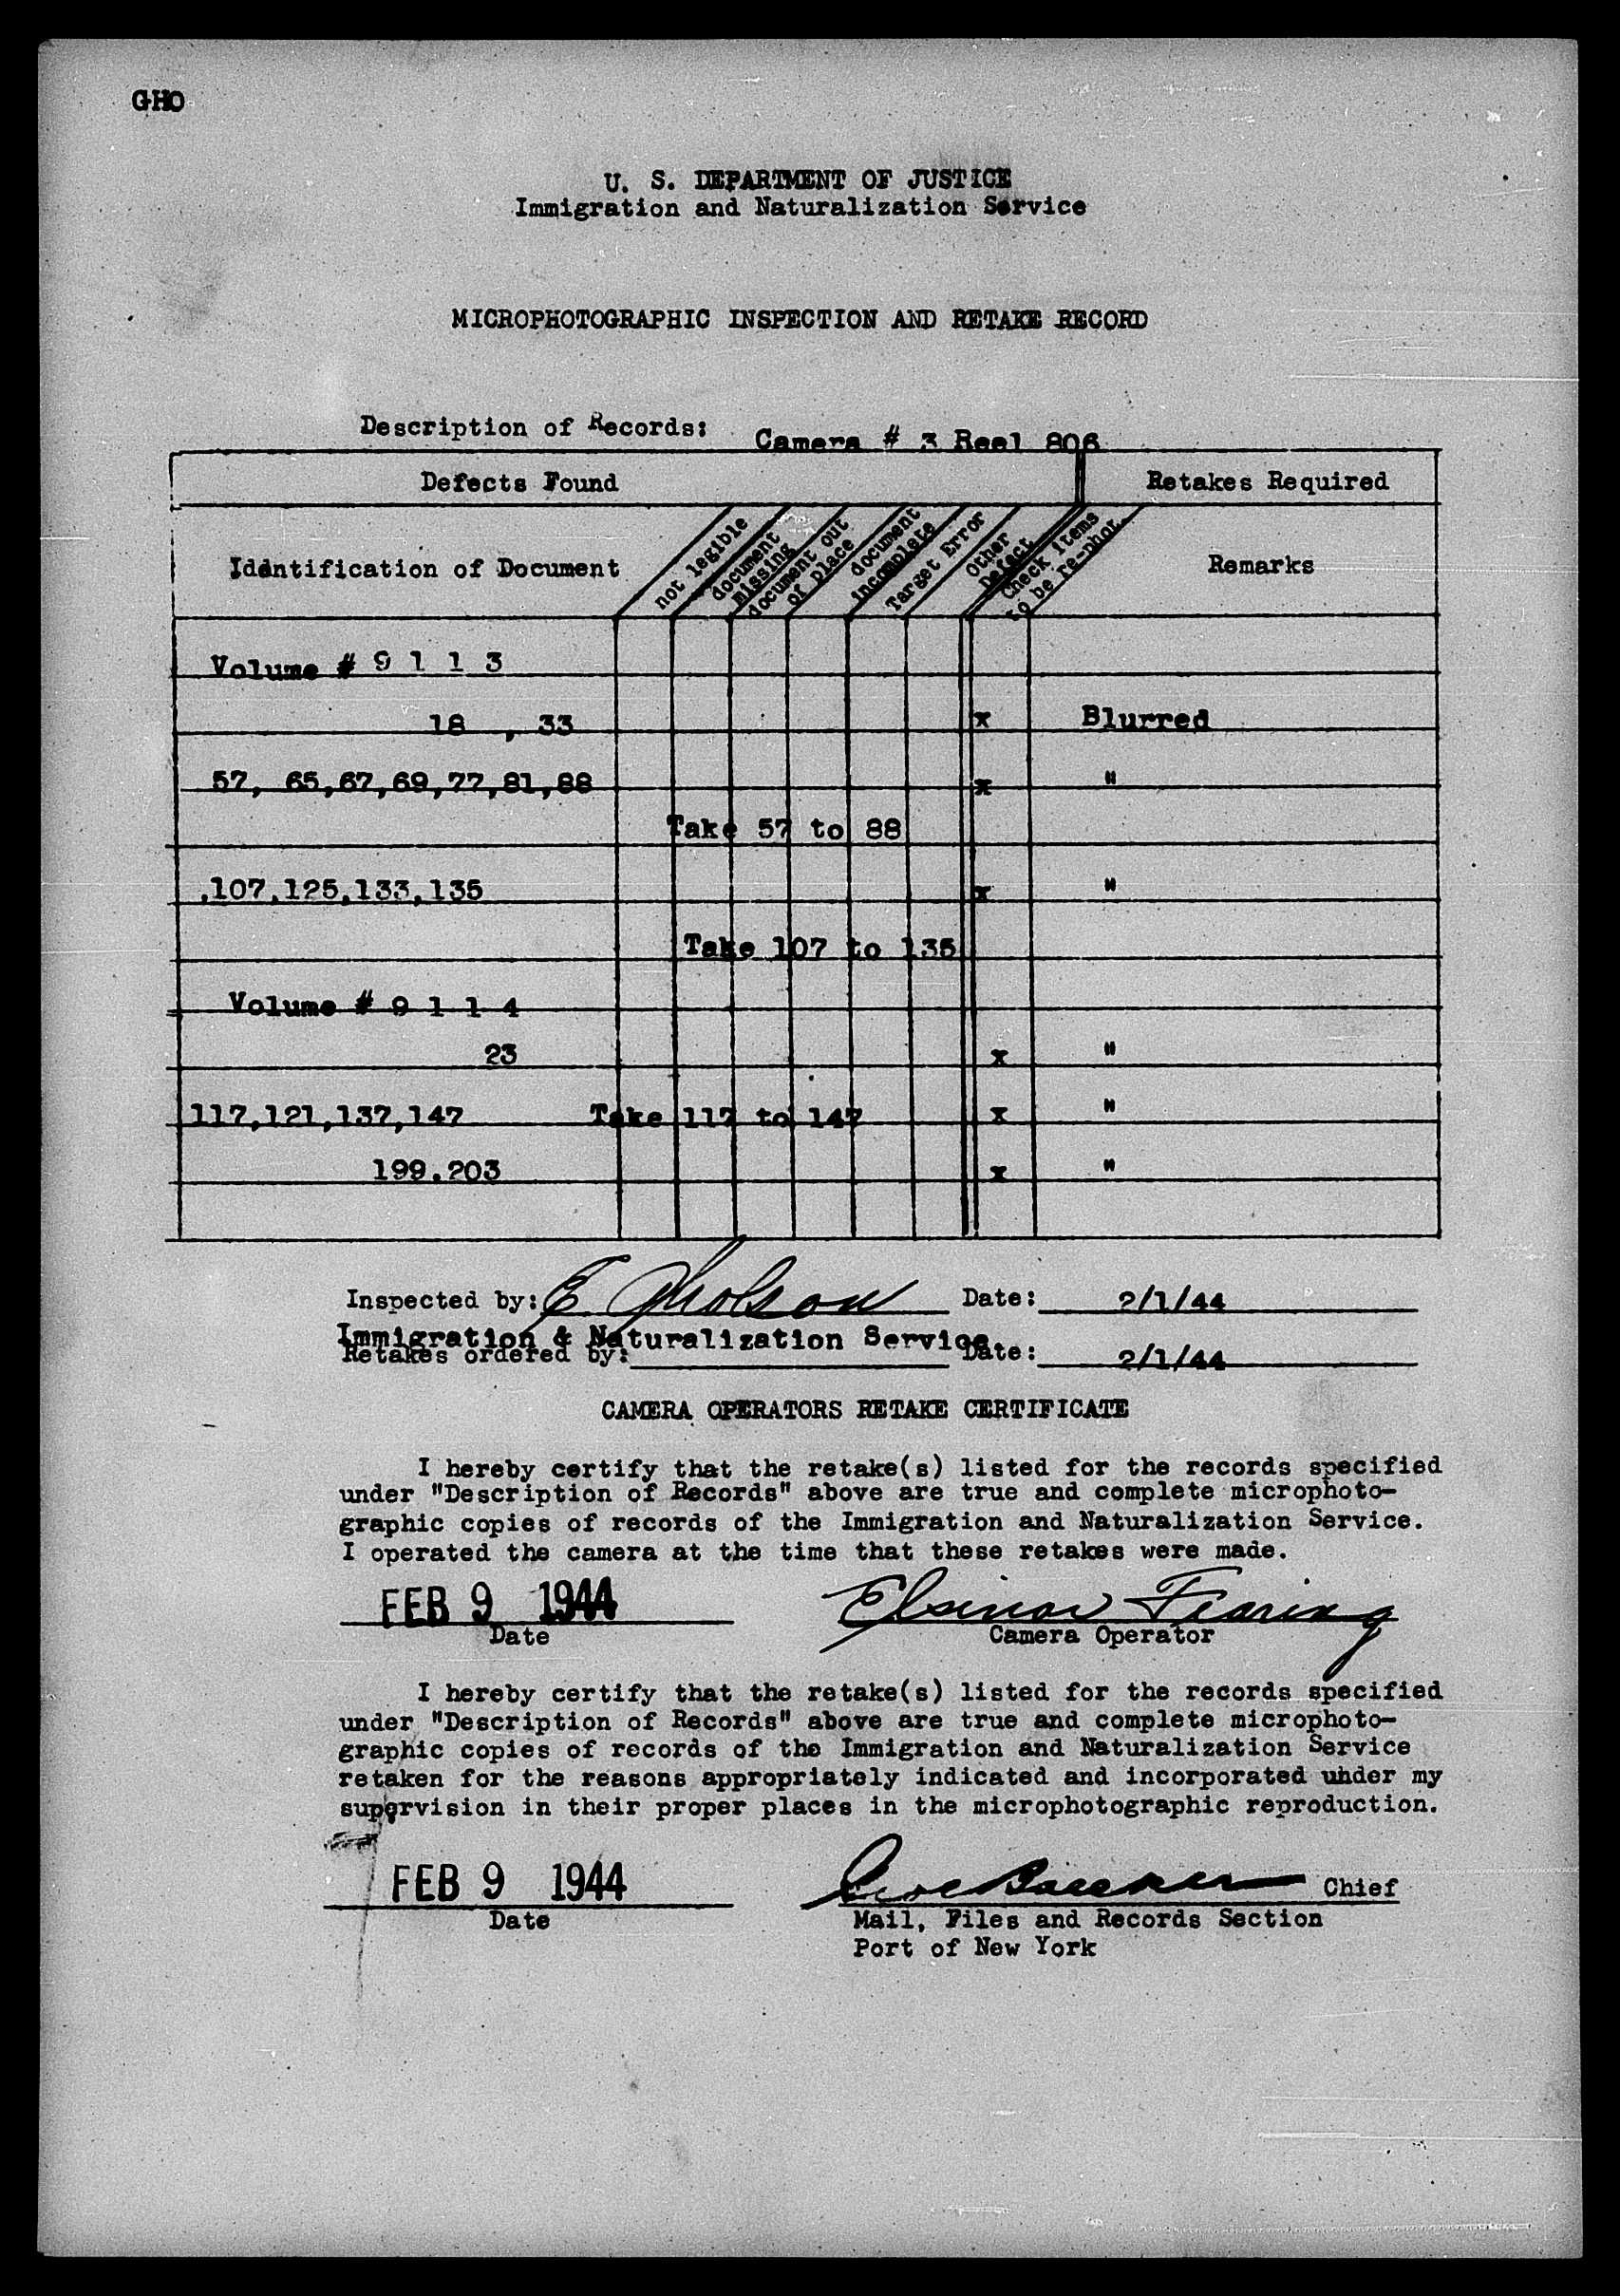 GHO
U. S. DEPARTMENT OF JUSTICE
Immigration and Naturalization Service
MICROPHOTOGRAPHIC INSPECTION AND RETAKE RECORD
Description of Records: Camera # 3 Reel 806
Defects Found Retakes Required
Identification of Document
not legible
document missing
document out of place
document incomplete
Target Error
Other Defect
Check items to be re-phot.
Remarks
Volume # 9 1 1 3
18 , 33 x Blurred
57, 65,67,69,77,81,88 x "
Take 57 to 88
,107,125,133,135 x "
Take 107 to 135
Volume # 9 1 1 4
23 x "
117,121,137,147 Take 117 to 147 x "
199.203 x "
Inspected by: E. Gholson Date: 2/1/44
Immigration & Naturalization Service
Retakes ordered by: Date: 2/1/44
CAMERA OPERATORS RETAKE CERTIFICATE
I hereby certify that the retake(s) listed for the records specified
under "Description of Records" above are true and complete microphoto-
graphic copies of records of the Immigration and Naturalization Service.
I operated the camera at the time that these retakes were made.
FEB 9 1944 Elsinor Fearing
Date Camera Operator
I hereby certify that the retake(s) listed for the records specified
under "Description of Records" above are true and complete microphoto-
graphic copies of records of the Immigration and Naturalization Service
retaken for the reasons appropriately indicated and incorporated under my
supervision in their proper places in the microphotographic reproduction.
FEB 9 1944 Chief
Date Mail, Files and Records Section
Port of New York